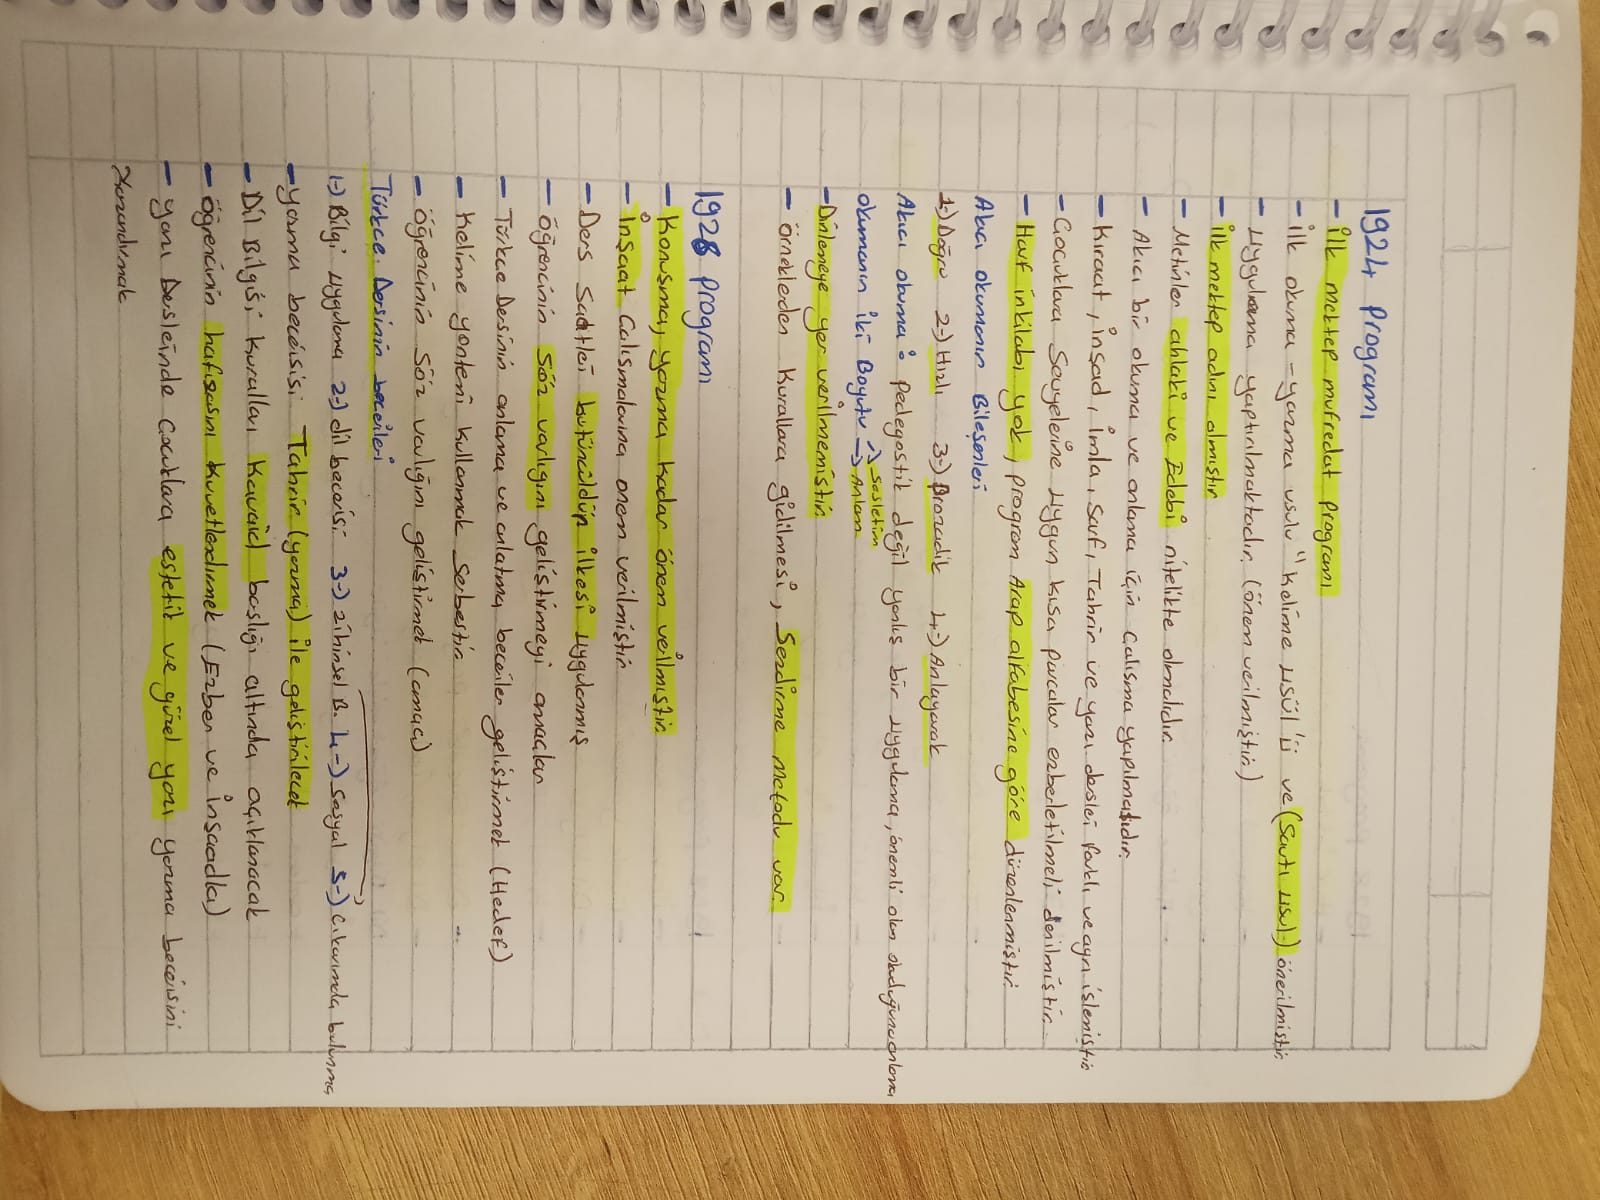 1924 programı
- İlk mektep müfredat programı
- İlk okuma - yazma usulü "kelime usül"ü ve (Savti usul) önerilmiştir.
- Uygulama yaptırılmaktadır. (önem verilmiştir.)
- İlk mektep adını almıştır
- Metinler ahlaki ve Edebi nitelikte olmalıdır.
- Akıcı bir okuma ve anlama için çalışma yapılmalıdır.
- Kıraat, inşad, imla, sarf, Tahrir ve yazı dersleri farklı ve ayrı işlenmiştir
- Çocuklara Seviyelerine uygun kısa parçalar ezberletilmeli denilmiştir.
- Harf inkılabı yok, program Arap alfabesine göre düzenlenmiştir.
Akıcı okumanın Bileşenleri
1-) Doğru 2-) Hızlı 3-) Prozodik 4-) Anlayarak
Akıcı okuma: pedagostik değil yanlış bir uygulama, önemli olan okuduğunu anlama
okumanın iki Boyutu -> Sesletim
-> Anlam
- Dinlemeye yer verilmemiştir.
- örneklerden kurallara gidilmesi, Sezdirme metodu var.
1928 programı
- Konuşma, yazma kadar önem verilmiştir.
- İnşaat Çalışmalarına önem verilmiştir.
- Ders Saatleri bütüncüllük ilkesi uygulanmış
- Öğrencinin Söz varlığını geliştirmeyi amaçlar
- Türkçe Dersinin anlama ve anlatma beceriler geliştirmek (Hedef)
- Kelime yöntemi kullanmak Serbestir.
- Öğrencinin Söz varlığını geliştirmek (amaç)
Türkçe Dersinin becerileri
1-) Bilgi uygulama 2-) dil becerisi 3-) zihinsel B. 4-) Sosyal 5-) Çıkarımda bulunma
- Yazma becerisi Tahrir (yazma) ile geliştirilecek
- Dil Bilgisi kuralları Kavaid başlığı altında açıklanacak
- öğrencinin hafızasını kuvetlendirmek (Ezber ve inşaadla)
- yazı Derslerinde Çocuklara estetik ve güzel yazı yazma becerisini
Kazandırmak